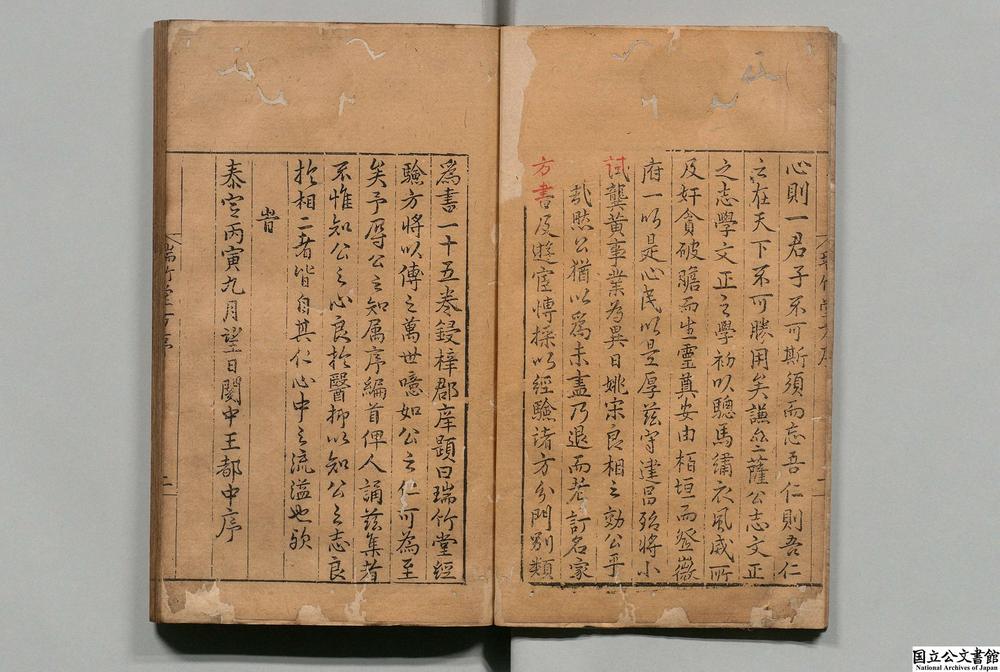 心則一君子不可斯須而忘吾仁則吾仁
之在天下不可勝用矣謙齋薩公志文正
之志學文正之學初以驄馬繡衣風威所
及奸貪破膽而生靈奠安由栢垣而登薇
府一以是心民以是厚茲守建昌殆將小
試龔黃事業為異日姚宋良相之効公乎
哉然公猶以為未盡乃退而考訂名家
方書及遊宦博採以經驗諸方分門別類
為書一十五卷鋟梓郡庠題曰瑞竹堂經
驗方將以傳之萬世噫如公之仁可為至
矣予辱公之知属序編首俾人誦茲集者
不惟知公之心良扵醫抑以知公之志良
扵相二者皆自其仁心中之流溢也欤
旹
泰定丙寅九月望日閩中王都中序
瑞竹堂方序
二
国立公文書館
National Archives of Japan